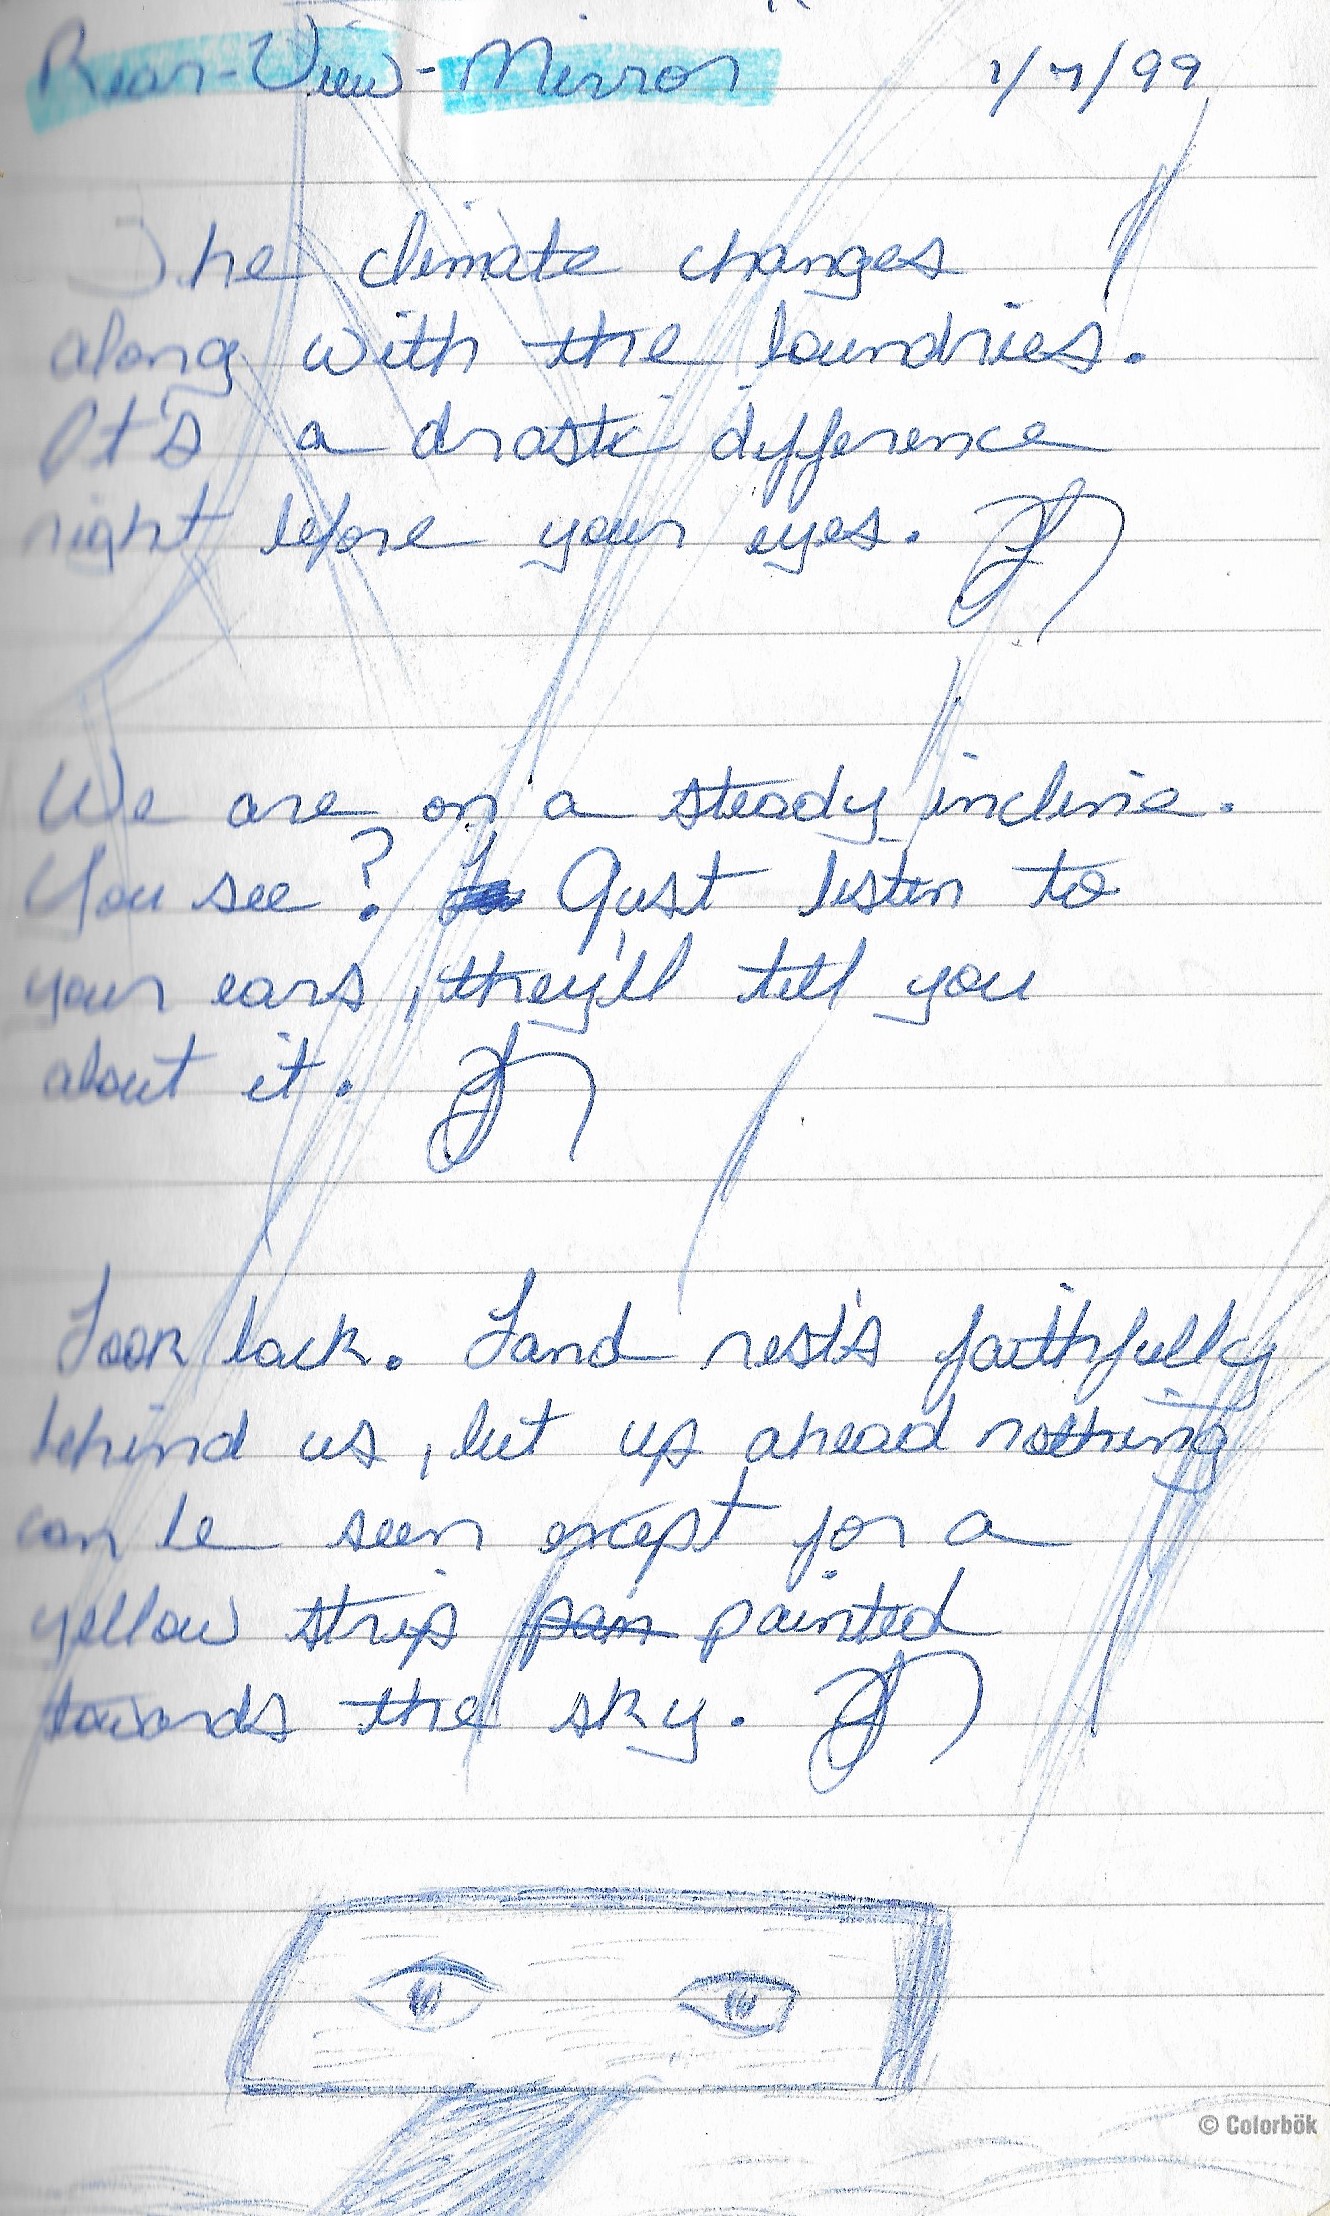 Rear-View-Mirror 1/7/99
The climate changes
along with the boundries.
It's a drastic difference
right before your eyes.
We are on a steady incline.
You see? Just listen to
your ears, they'll tell you
about it.
Look back. Land rests faithfully
behind us, but up ahead nothing
can be seen except for a
yellow strip pain painted
towards the sky.
© Colorbök